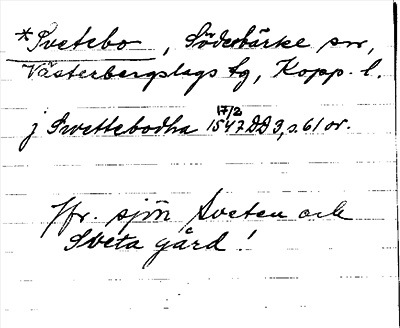 *Svetebo, Söderbärke sn,
Västerbergslags tg, Kopp. l.
j Swettebodha 17/2 1547 DD 3, s. 61 or.
Jfr. sjön Sveten och
Sveta gård!